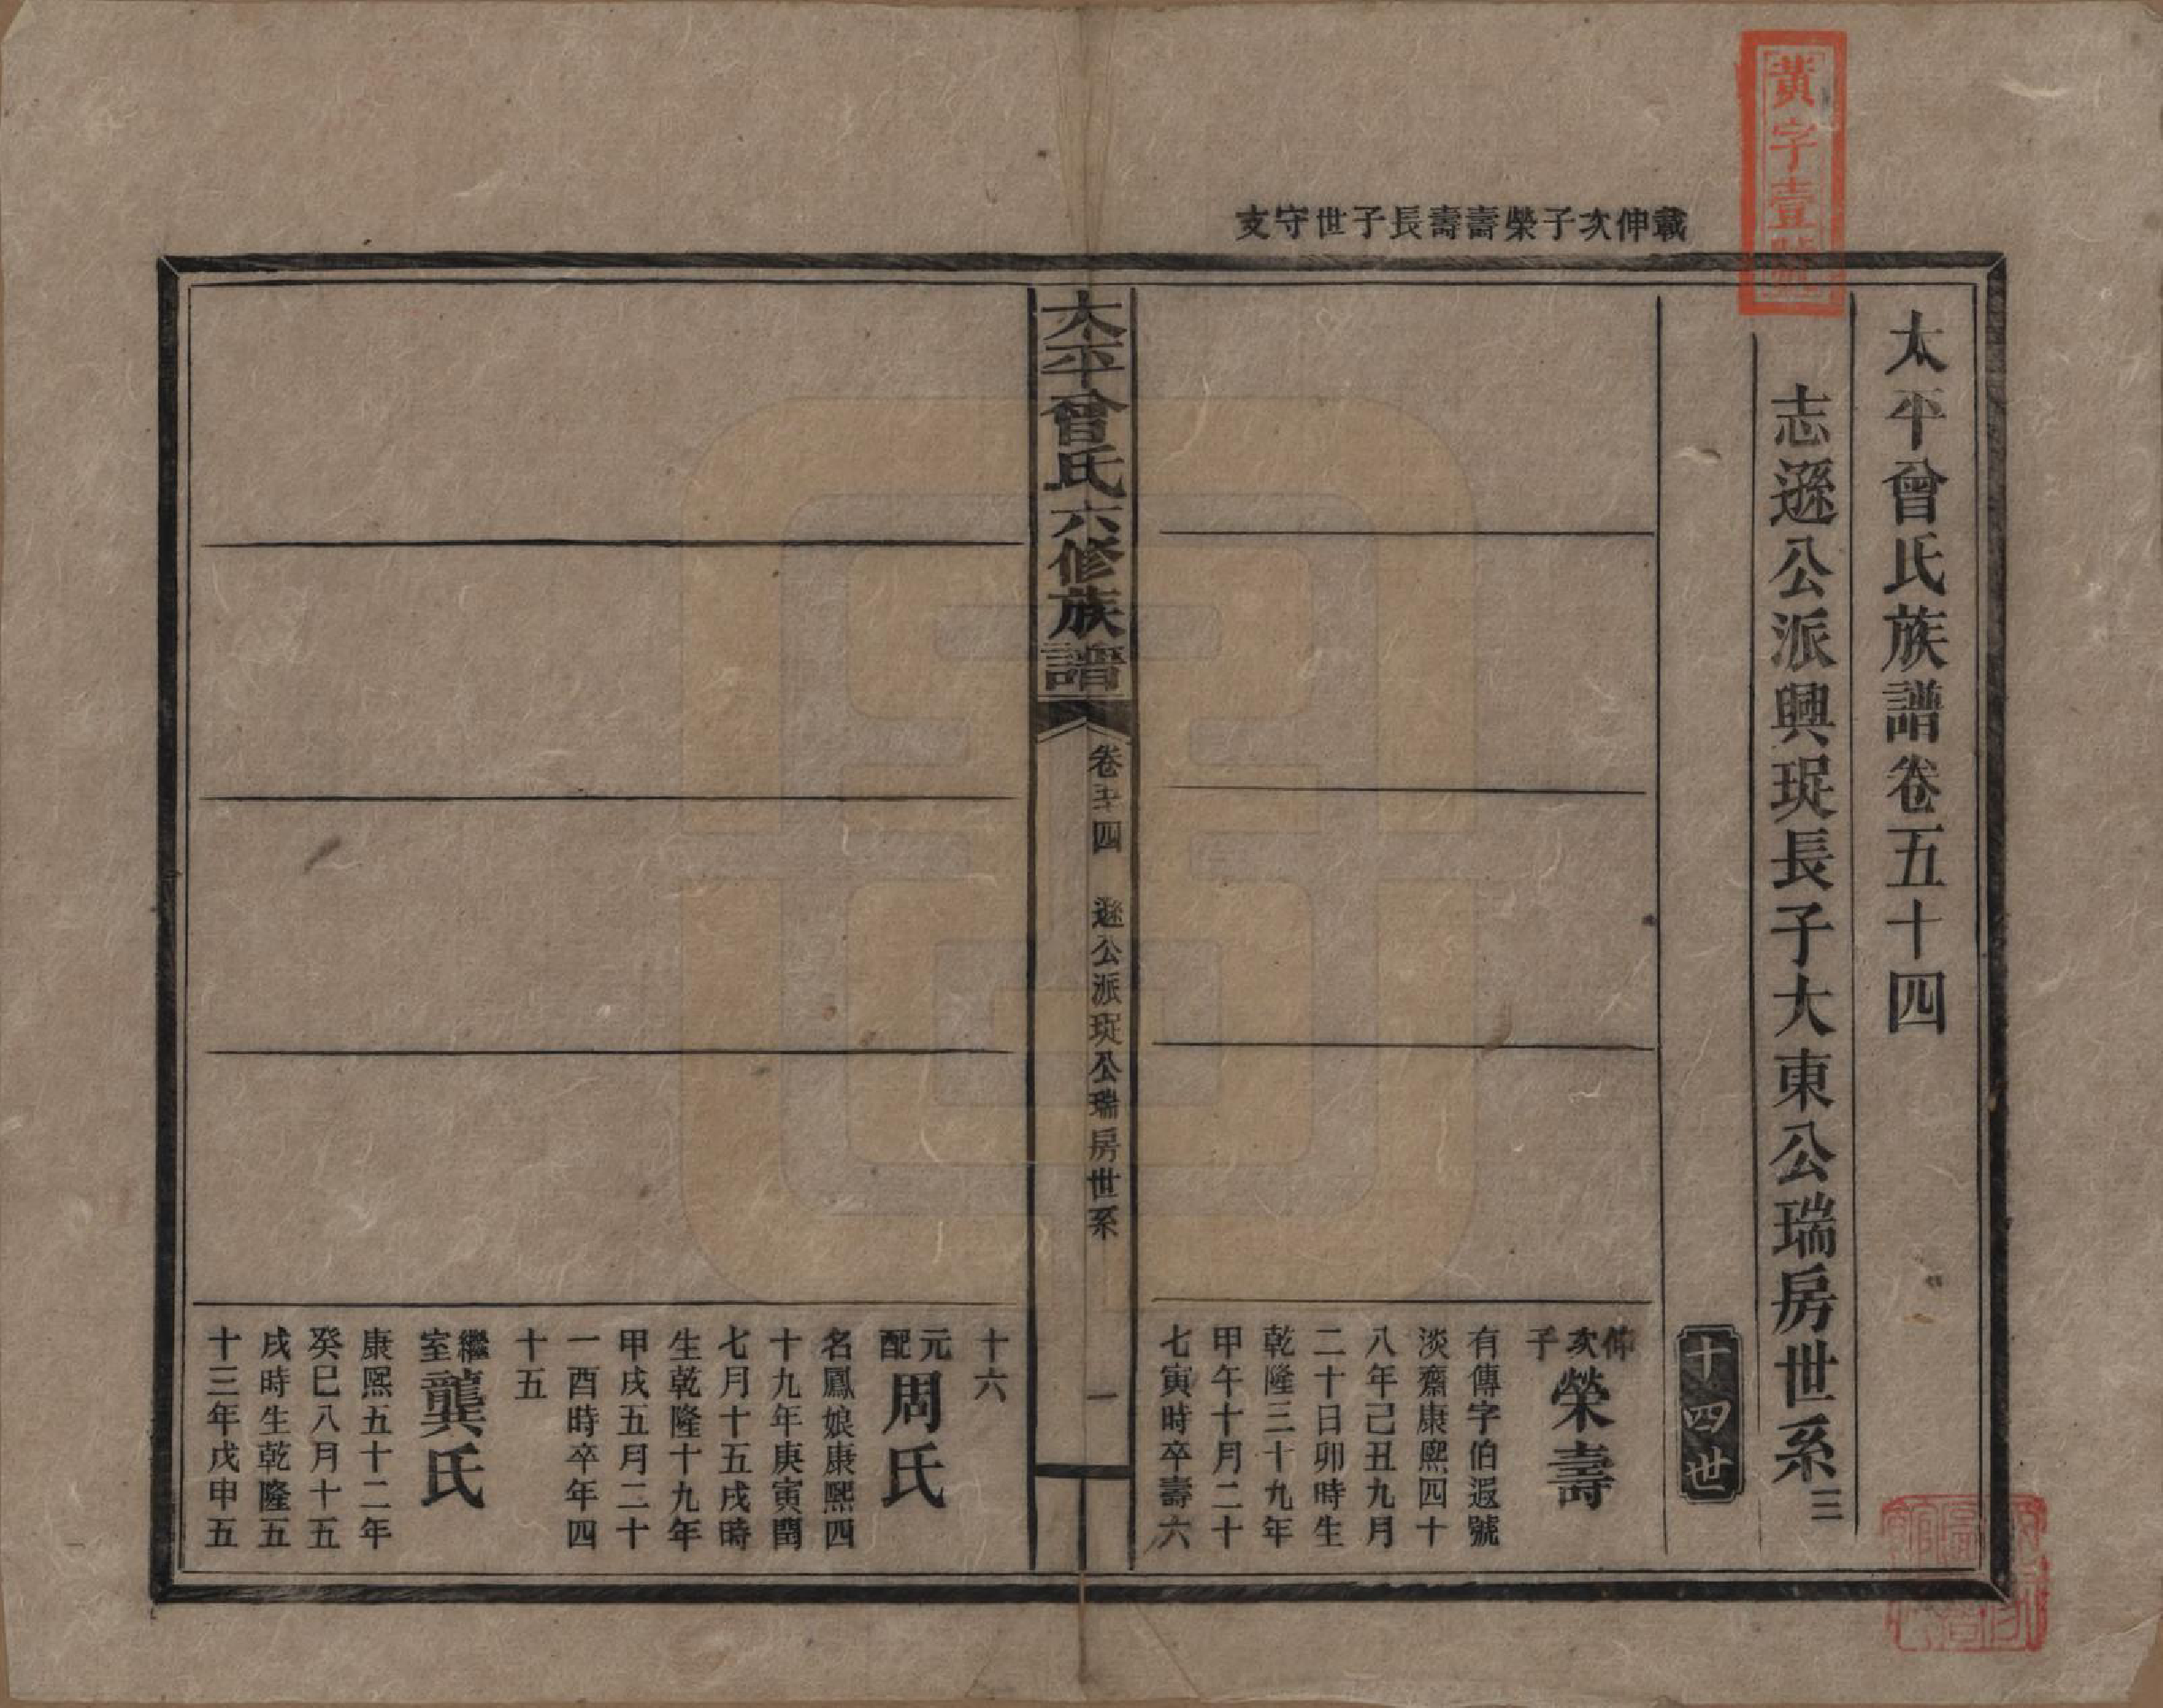 黃字壹號
載伸次子榮壽壽長子世守支
太平曾氏族譜卷五十四
志遜公派興珽長子大東公瑞房世系三
十四世
伸次子榮壽
有傳字伯遐號
淡齋康熙四十
八年己丑九月
二十日卯時生
乾隆三十九年
甲午十月二十
七寅時卒壽六
太平曾氏六修族譜
卷五十四 遜公派珽公瑞房世系
一
十六
元配周氏
名鳳娘康熙四
十九年庚寅閏
七月十五戌時
生乾隆十九年
甲戌五月二十
一酉時卒年四
十五
繼室龔氏
康熙五十二年
癸巳八月十五
戌時生乾隆五
十三年戊申五